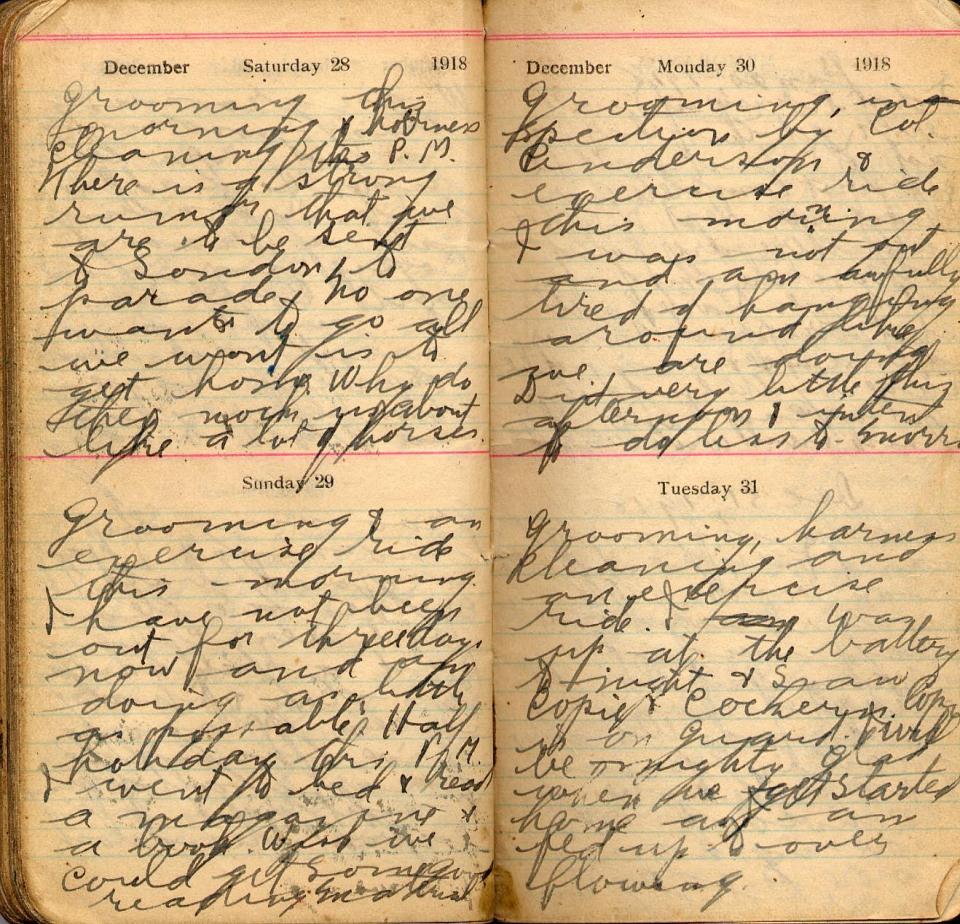 December Saturday 28 1918
Grooming this
morning & harness
cleaning this P.M.
There is a strong
rumor that we
are to be sent
to London to
parade, no one
wants to go all
we want is to
get home. Why do
they us about
like a lot of horses.
Sunday 29
Grooming & an
exercise ride
this morning.
I have not been
out for three days
now and am
doing as little
as possible. Half
holiday this P.M.
I went to bed & read
a magazine &
a book. Wish we
could get some good
reading material
December Monday 30 1918
Grooming, ins
pection by Col.
Anderson &
exercise ride
this morning
I was not out
and am awfully
tired of hanging
around like
we are doing
Did very little this
afternoon & intend
to do less to-morro
Tuesday 31
Grooming, harness
cleaning and
an exercise
ride. I was
up at the battery
to night & saw
Copie & Cochern. Copie
is on guard. I will
be mighty glad
when we get started
home as am
fed up to over
flowing.